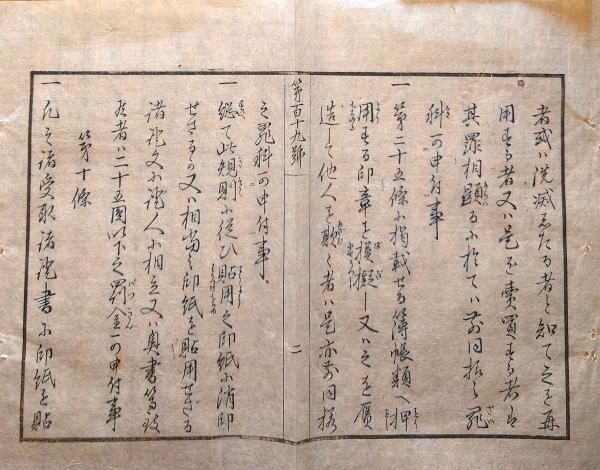 者或ハ洗滅したる者と知て之を再
用する者又ハ是を賣買する者ハ
其罪相顕るに於てハ前同様之罪
科可申付事
一 第二十五條に掲載せる簿帳類へ押
用する印章を模擬し又ハ之を贋
造して他人を欺く者ハ是亦前同様
第百十九號
二
之罪科可申付事
一 総て此規則に従ひ貼用之印紙に消印
せざるか又ハ相当之印紙を貼用せざる
諸證文に證人に相立又ハ奥書等致
者ハ二十五圓以下之罰金可申付事
第十條
一 凡そ諸受取諸證書に印紙を貼